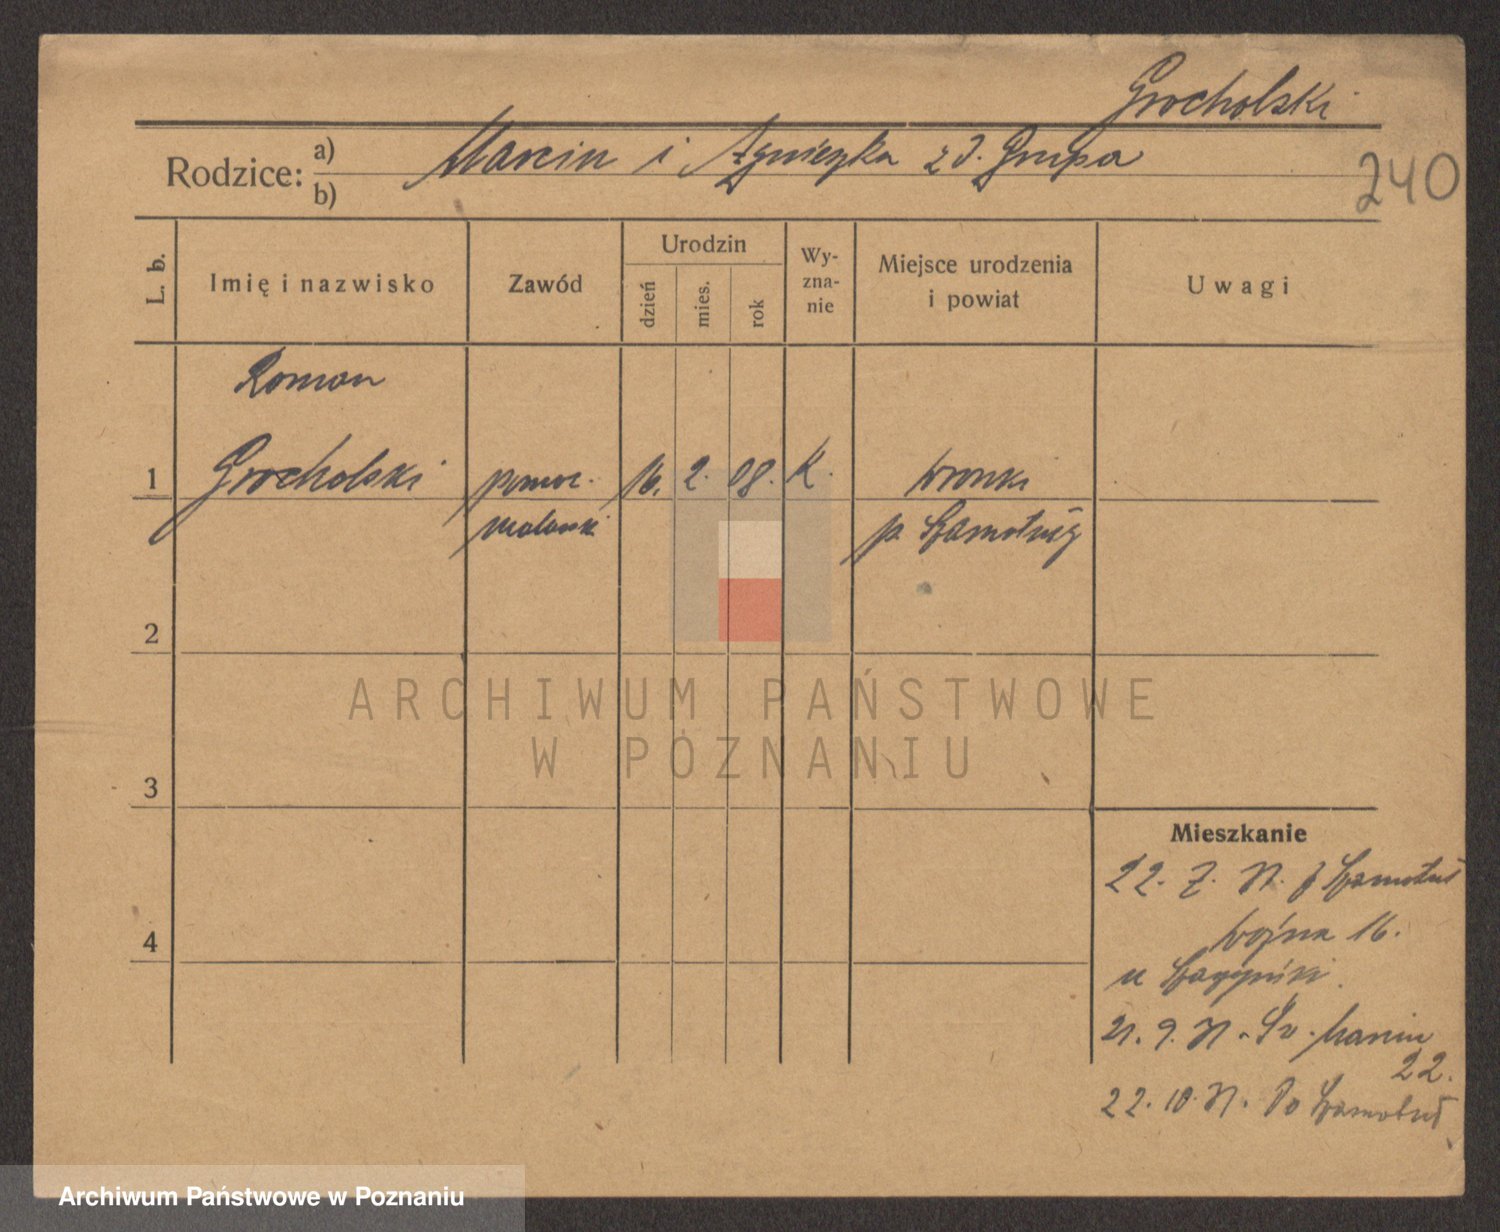 Grocholski
Rodzice: a) Marcin i Agnieszka z d. Grupa
b)
240
L. b.
Imię i nazwisko
Zawód
Urodzin
dzień
mies.
rok
Wy-
zna-
nie
Miejsce urodzenia
i powiat
Uwagi
Roman
1 Grocholski pomoc. 16. 2. 08. K. Wronki
malarski p. Szamotuły
2
ARCHIWUM PAŃSTWOWE
W POZNANIU
3
Mieszkanie
22. 7. 31. z Szamotuł
4
Wojna 16.
u
21. 9. 31. Św. Marcin
22.
22. 10. 31. Do Szamotuł
Archiwum Państwowe w Poznaniu